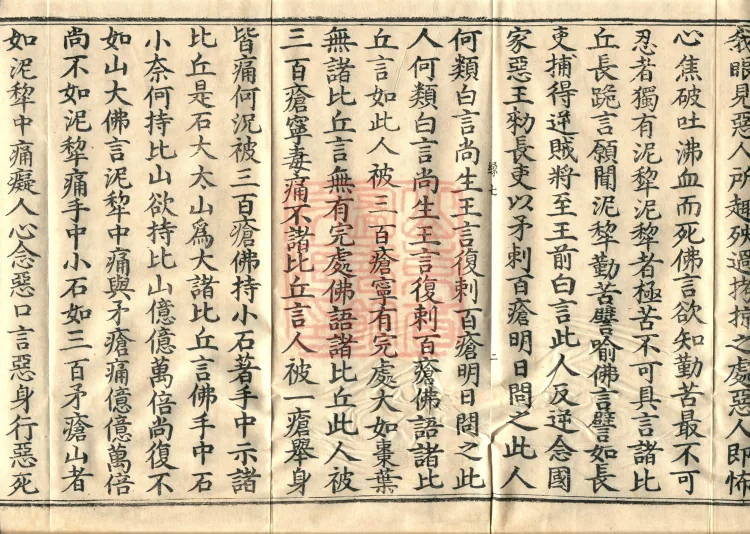 眼見惡人所趣殃過掠之處惡人即怖
心焦破吐沸血而死佛言欲知勤苦最不可
忍者獨有泥犂泥犂者極苦不可具言諸比
丘長跪言願聞泥犂勤苦譬喻佛言譬如長
吏捕得逆賊將至王前白言此人反逆念國
家惡王勑長吏以矛刺百瘡明日問之此人
何類白言尚生王言復刺百瘡明日問之此
七 二
人何類白言尚生王言復刺百瘡佛語諸比
丘言如此人被三百瘡寧有完處大如棗葉
無諸比丘言無有完處佛語諸比丘此人被
三百瘡寧毒痛不諸比丘言人被一瘡舉身
皆痛何況被三百瘡佛持小石著手中示諸
比丘是石大太山爲大諸比丘言佛手中石
小奈何持比山欲持比山億億萬倍尚復不
如山大佛言泥犂中痛與矛瘡痛億億萬倍
尚不如泥犂痛手中小石如三百矛瘡山者
如泥犂中痛癡人心念惡口言惡身行惡死